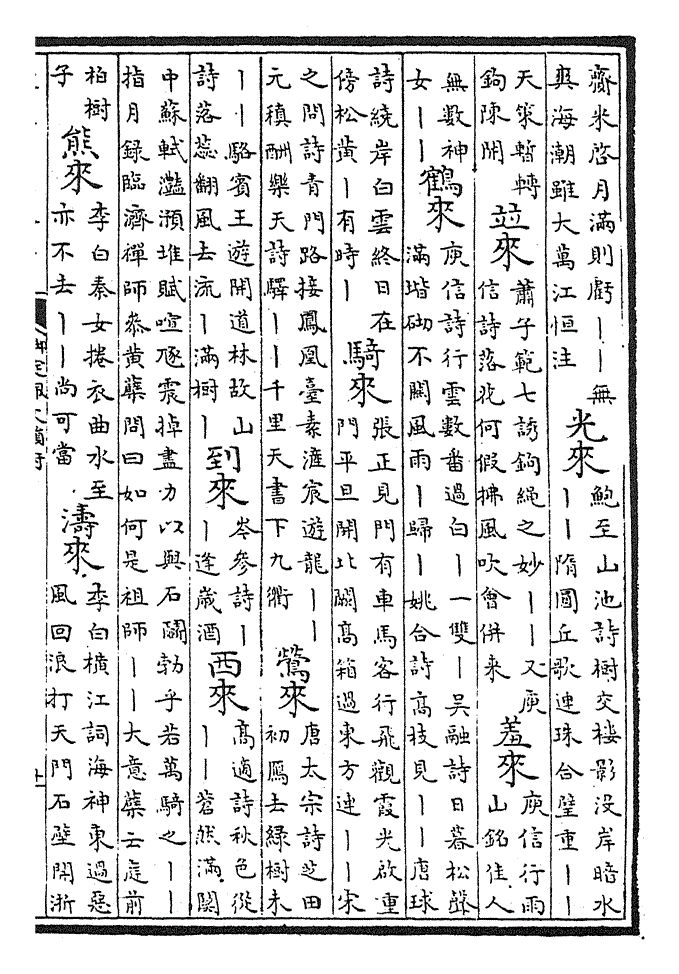 齊米啓月滿則虧丨丨無
爽海潮雖大萬江恒注
光來
鮑至山池詩樹交樓影沒岸暗水
丨丨隋圜丘歌連珠合璧重丨丨
天策暫轉
鉤陳開
竝來
蕭子範七誘鉤繩之妙丨丨又庾
信詩落花何假拂風吹會併來
羞來
庾信行雨
山銘佳人
無數神
女丨丨
鶴來
庾信詩行雲數番過白丨一雙丨吳融詩日暮松聲
滿堦砌不關風雨丨歸丨姚合詩高枝見丨丨唐球
詩繞岸白雲終日在
傍松黄丨有時丨
騎來
張正見門有車馬客行飛觀霞光啟重
門平旦開北闕高箱過東方連丨丨宋
之問詩青門路接鳳凰臺素滻宸遊龍丨丨
元稹酬樂天詩驛丨丨千里天書下九衢
鶯來
唐太宗詩芝田
初鴈去綠樹未
丨丨駱賓王遊開道林故山
詩落蕊翻風去流丨滿樹丨
到來
岑參詩丨
丨逢歲酒
西來
高適詩秋色從
丨丨蒼然滿關
中蘇軾灔澦堆賦喧豗震掉盡力以與石鬬勃乎若萬騎之丨丨
指月錄臨濟禪師參黄蘗問曰如何是祖師丨丨大意蘗云庭前
柏樹
子
熊來
李白秦女捲衣曲水至
亦不去丨丨尚可當
濤來
李白橫江詞海神東過惡
風回浪打天門石壁開浙